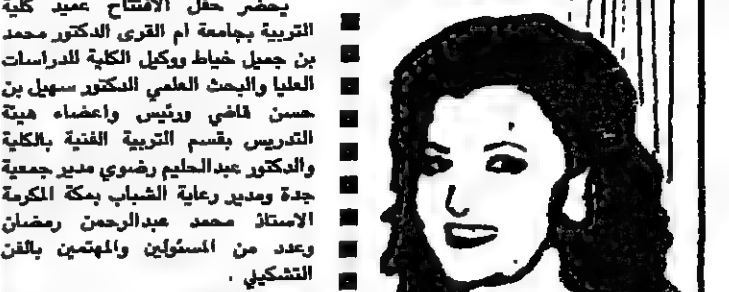 يحضر حفل الافتتاح عميد كلية
التربية بجامعة ام القرى الدكتور محمد
بن جميل خياط ووكيل الكلية للدراسات
العليا والبحث العلمي الدكتور سهيل بن
حسن قاضي ورئيس واعضاء هيئة
التدريس بقسم التربية الفنية بالكلية
والدكتور عبدالحليم رضوي مدير جمعية
جدة ومدير رعاية الشباب بمكة المكرمة
الاستاذ محمد عبدالرحمن رمضان
وعدد من المسئولين والمهتمين بالفن
التشكيلي .